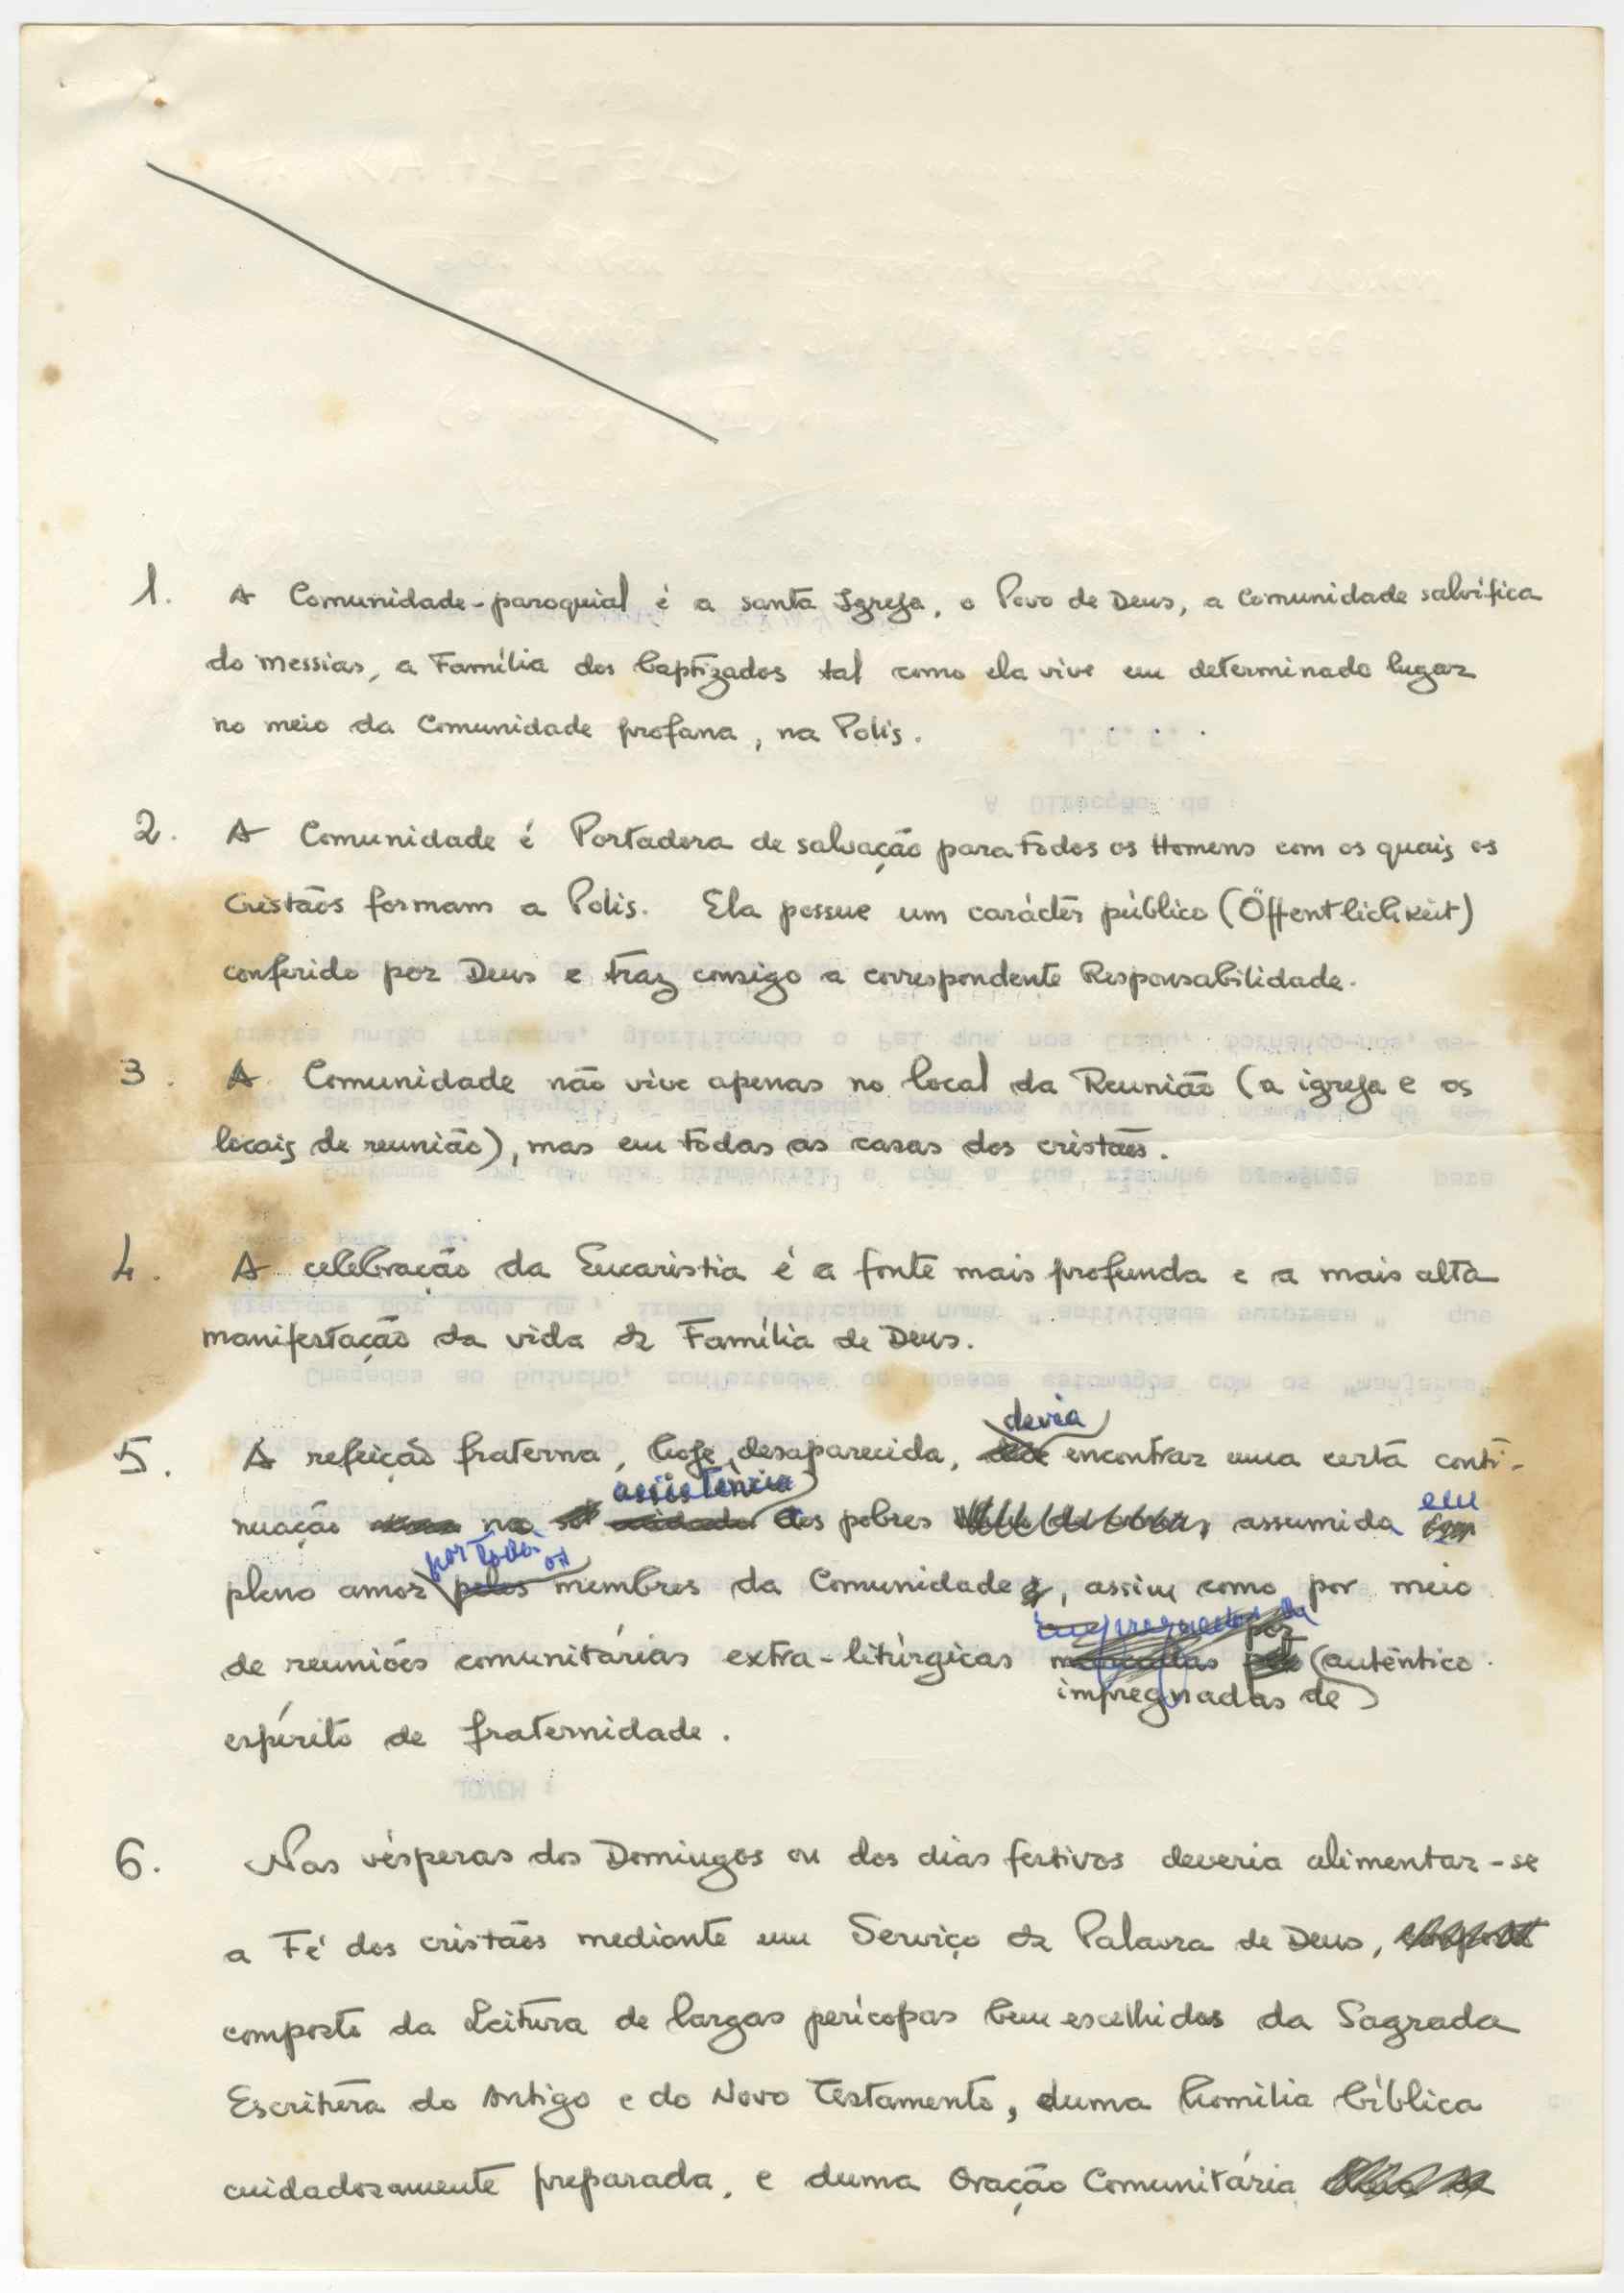 1. A Comunidade-paroquial é a santa Igreja, o Povo de Deus, a Comunidade salvífica
do Messias, a Família dos baptizados tal como ela vive em determinado lugar
no meio da Comunidade profana, na Polis.
2. A Comunidade é Portadora de salvação para todos os Homens com os quais os
Cristãos formam a Polis. Ela possue um carácter público (Öffentlichkeit)
conferido por Deus e traz consigo a correspondente Responsabilidade.
3. A Comunidade não vive apenas no local da Reunião (a igreja e os
locais de reunião), mas em tôdas as casas dos cristãos.
4. A celebração da Eucaristia é a fonte mais profunda e a mais alta
manifestação da vida da Família de Deus.
devia
5. A refeição fraterna, hoje desaparecida, encontrar uma certa conti-
assistência em
nuação na dos pobres assumida
por todos os
pleno amor pelos membros da Comunidade, assim como por meio
de reuniões comunitárias extra-litúrgicas por autêntico
impregnadas de
espírito de fraternidade.
6. Nas vésperas dos Domingos ou dos dias festivos deveria alimentar-se
a Fé dos cristãos mediante um Serviço da Palavra de Deus,
composto da Leitura de largas perícopas bem escolhidas da Sagrada
Escritura do Antigo e do Novo Testamento, duma homilia bíblica
cuidadosamente preparada, e duma Oração Comunitária